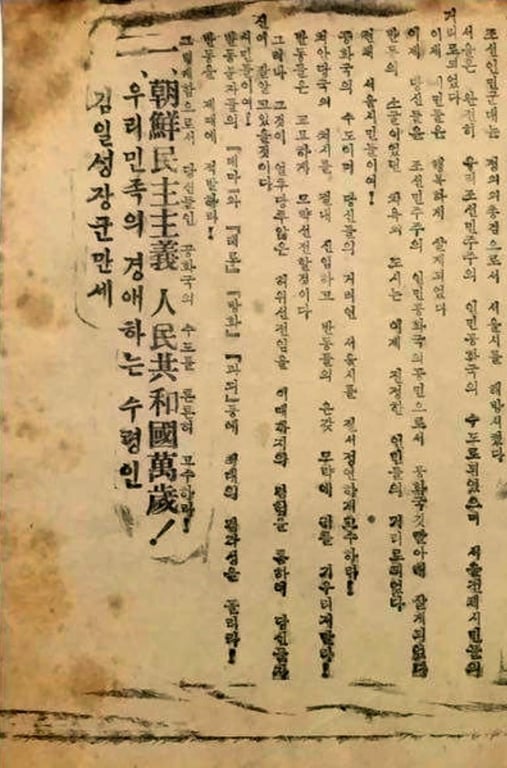 조선인민군대는 정의의총검으로서 서울시를 해방시켰다
서울은 완전히 우리조선민주주의 인민공화국의 수도로되였으며 서울전체시민들의
거리로되었다
이제 시민들은 행복하게 살게되었다
이제 당신들은 조선민주주의 인민공화국의공민으로서 살게되었다
반동의 소굴이었던 도시는 이제 진정한 인민들의 거리로되었다
전체 서울시민들이여!
공화국의 수도이며 당신들의 거리인 서울시를 질서정연하게고수하라!
절대 신임하고 반동들의 온갖 모략에 귀를 기우리지말라!
반동들은 교묘하게 모략선전할것이다
그러나 그것이 얼투당투않은 허위선전임을 이때까지의 경험을 통하여 당신들은
잘알고있을것이다
시민들이여!
반동분자들의 『방화』 『파괴』등에 최대의 경각성을 돌리라!
반동을 제때에 적발하라!
그렇게함으로서 당신들인 공화국의 수도를 튼튼히 고수하라!
一、朝鮮民主主義 人民共和國萬歲!
一、우리민족의 경애하는 수령인
김일성장군만세